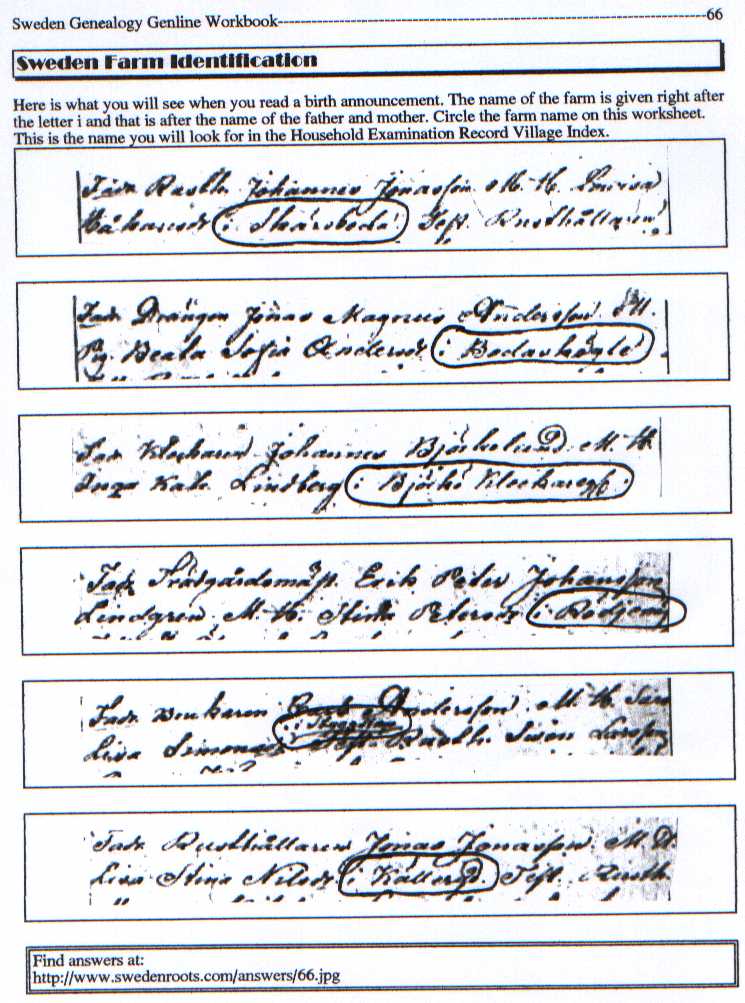 Sweden Genealogy Genline Workbook-----------------------------------------------------------------------66
Sweden Farm Identification
Here is what you will see when you read a birth announcement. The name of the farm is given right after
the letter i and that is after the name of the father and mother. Circle the farm name on this worksheet.
This is the name you will look for in the Household Examination Record Village Index.
Fadr. Rusth. Johannes Jonasson M. H.
i Skärsboda Test. Rusthållaren
Fadr. Drängen Jonas Magnus Andersson M.
Pig. Beata Sofia Andersdr i
Fadr. Klockaren Johannes Björkelund M. H.
Inga Kata Lindberg i Björkö
Fadr. Trädgårdsmäst. Erik Peter Johansson
Lindgren M. H. Stina Petersdr i
Fadr. Andersson M. H.
Lisa Test. Rusth. Larsson
Fadr. Rusthållaren Jonas Jonasson M. H.
Lisa Stina Nilsdr i Test. Rusth.
Find answers at:
http://www.swedenroots.com/answers/66.jpg